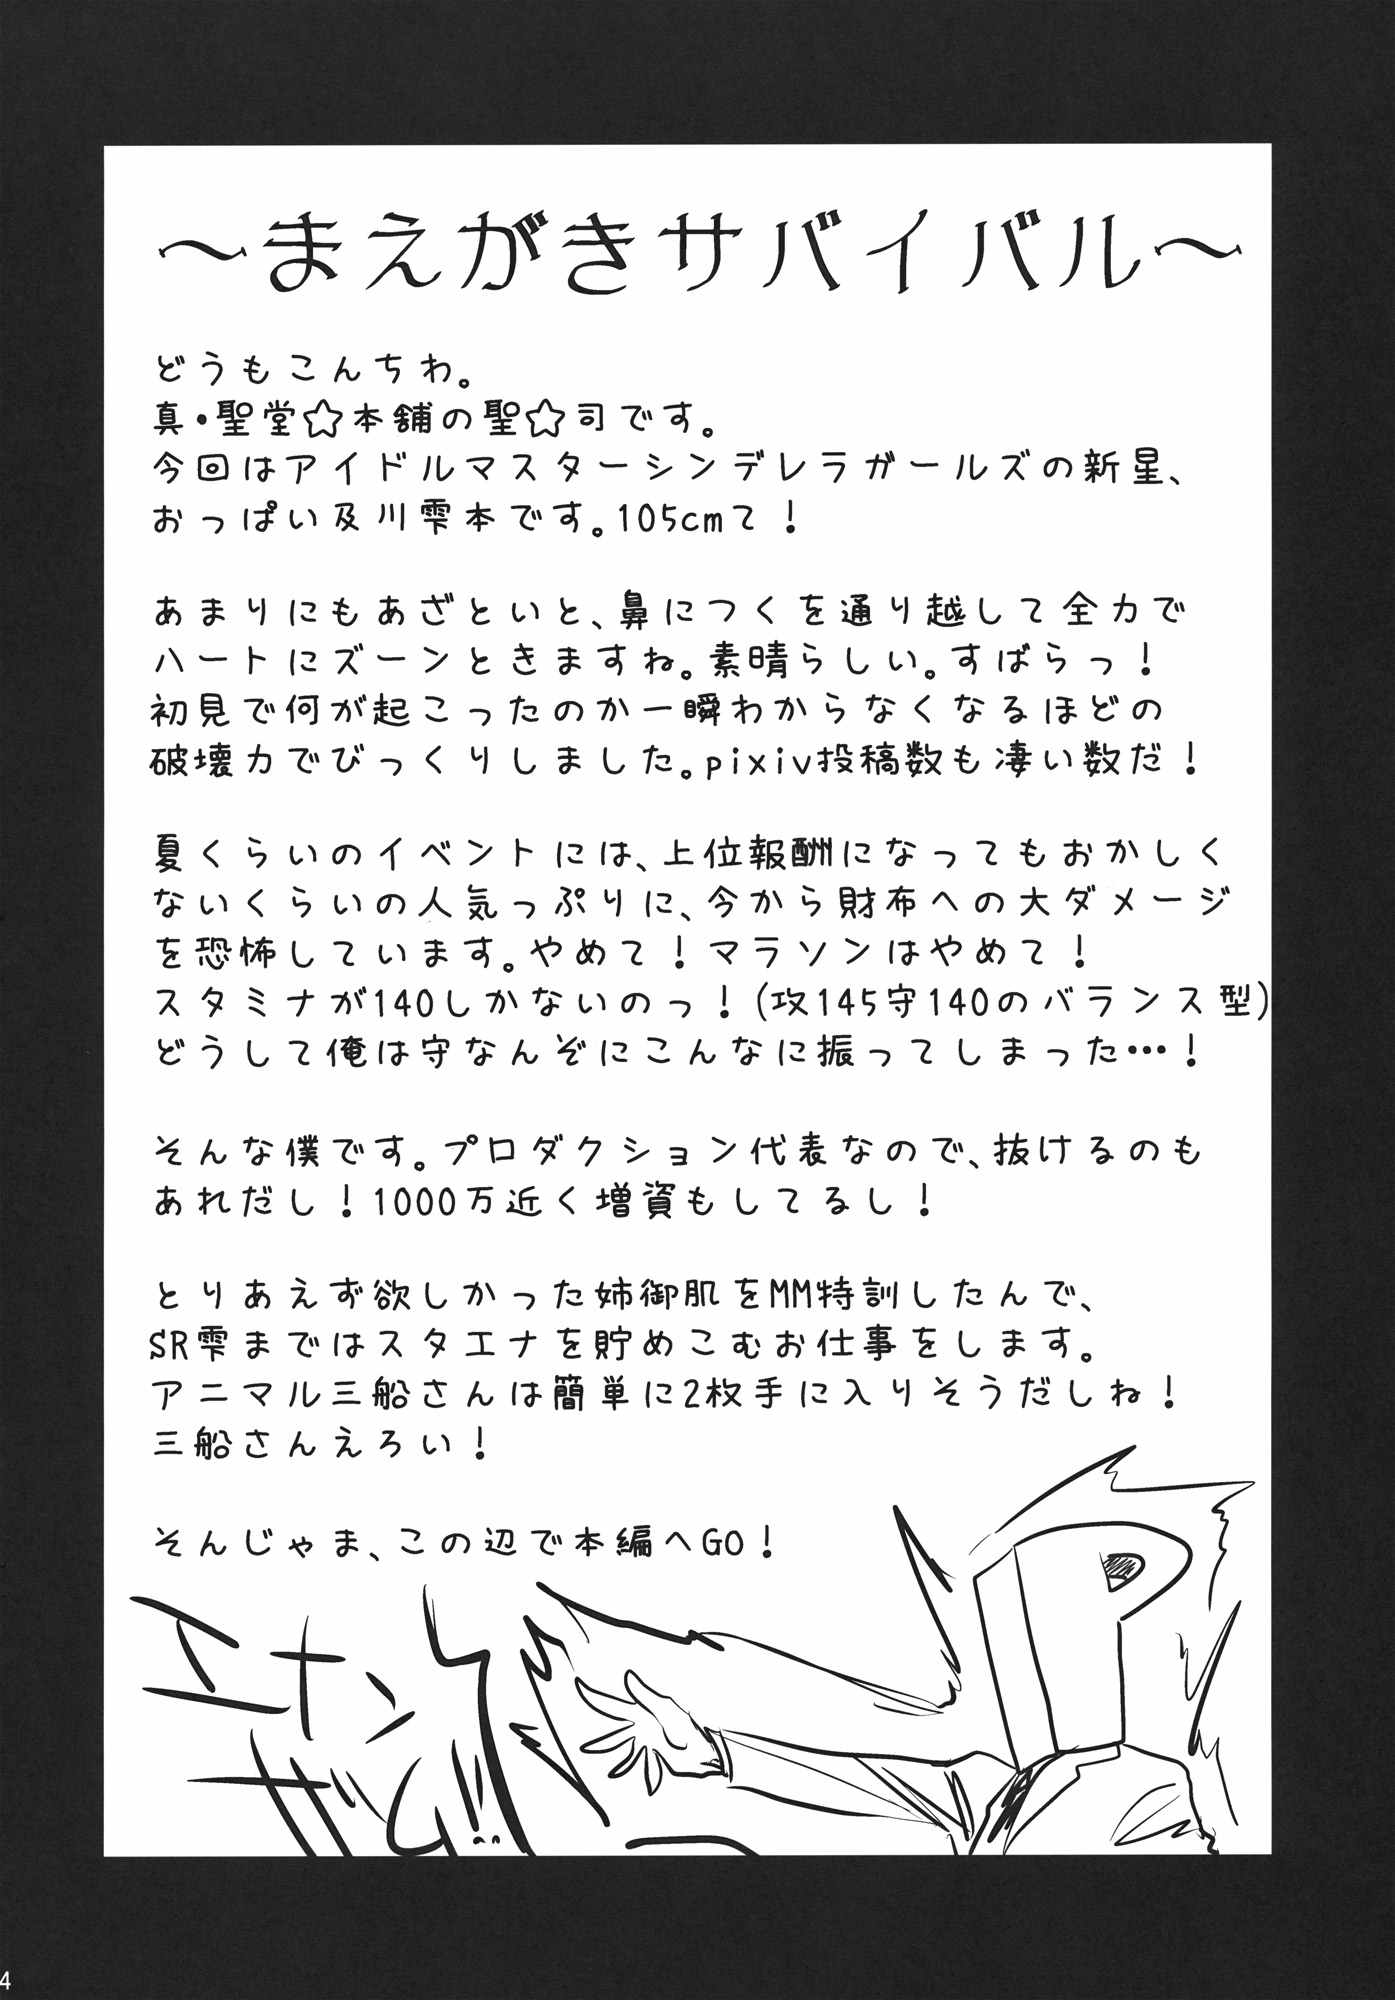 ～まえがきサバイバル～
どうもこんちわ。
真・聖堂☆本舗の聖☆司です。
今回はアイドルマスターシンデレラガールズの新星、
おっぱい及川雫本です。105cmて！
あまりにもあざといと、鼻につくを通り越して全力で
ハートにズーンときますね。素晴らしい。すばらっ！
初見で何が起こったのか一瞬わからなくなるほどの
破壊力でびっくりしました。pixiv投稿数も凄い数だ！
夏くらいのイベントには、上位報酬になってもおかしく
ないくらいの人気っぷりに、今から財布への大ダメージ
を恐怖しています。やめて！マラソンはやめて！
スタミナが140しかないのっ！(攻145守140のバランス型)
どうして俺は守なんぞにこんなに振ってしまった…！
そんな僕です。プロダクション代表なので、抜けるのも
あれだし！1000万近く増資もしてるし！
とりあえず欲しかった姉御肌をMM特訓したんで、
SR雫まではスタエナを貯めこむお仕事をします。
アニマル三船さんは簡単に2枚手に入りそうだしね！
三船さんえろい！
そんじゃま、この辺で本編へGO！
エナジ
P
4